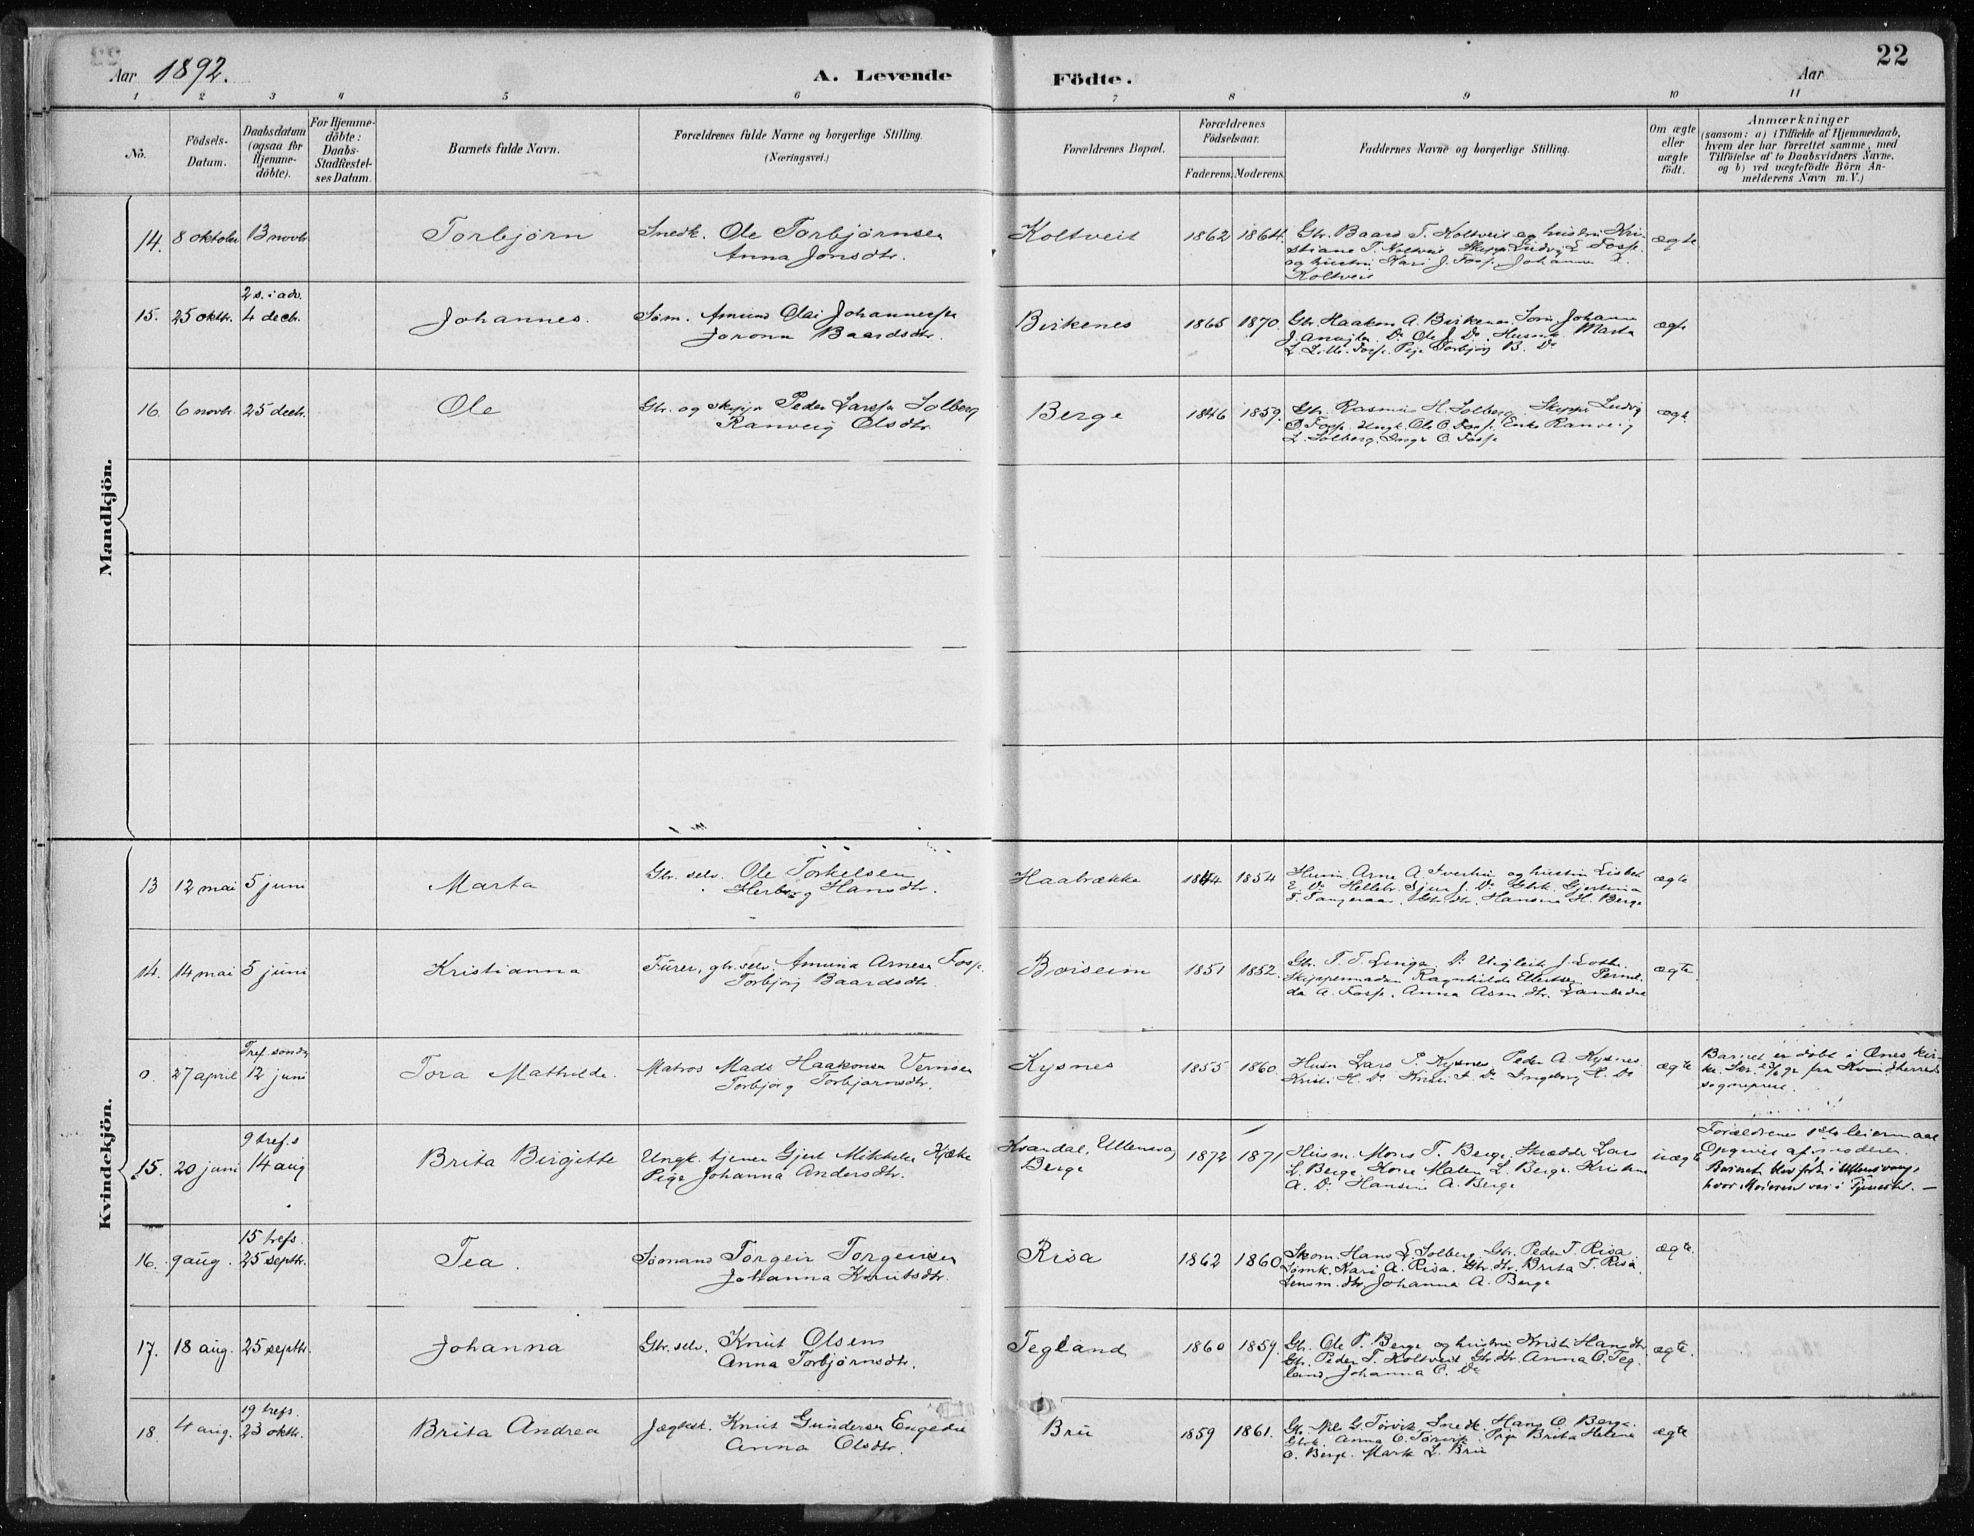 22
Aar 1892.
A. Levende Födte.
Aar
1 2 3 4 5 6 7 8 9 10 11
No.
Födsels-Datum.
Daabsdatum (ogsaa for Hjemme-döbte).
For Hjemme-döbte: Daabs-Stadfæstel-ses Datum.
Barnets fulde Navn.
Forældrenes fulde Navne og borgerlige Stilling.
(Næringsvei.)
Forældrenes Bopæl.
Forældrenes Födselsaar.
Faderens. Moderens.
Faddernes Navne og borgerlige Stilling.
Om ægte eller uægte födt.
Anmærkninger
(saasom: a) i Tilfælde af Hjemmedaab,
hvem der har forrettet samme, med
Tilföielse af to Daabsvidners Navne,
og b) ved uægtefödte Börn An-
melderens Navn m. V.)
Mandkjön.
14. 8 oktober 13 novbr Torbjörn Snedk. Ole Torbjørnsen
Anna Jonsdtr. Koltveit 1862 1864. Gbr. Baard T. Koltveit og hustru Kri-
stiane T. Koltveit Skipp. Ludvig L. Fosse.
og hustru Kari J. Fosse, Johanna
Koltveit ægte
2 s. i adv.
15. 25 oktr. 4 decbr. Johannes. Søm. Amund Olai Johannessen
Baardsdtr. Birkenes 1865 1870. Gbr. Haakon A. Birkenes Johanna
J. Do. Ole J. Do. Marta
L. Lille-Fosse. Pige Torbjør B. Do ægte
16. 6 novbr. 25 decbr. Ole Gbr. og skipper Peder Larsen Solberg
Ranveig Olsdtr. Berge 1846 1859. Gbr. Rasmus H. Solberg. Skipper Ludvig
Fosse. Ungk. Ole O. Fosse. Enke Ranveig
L. Solberg. Inga O. Fosse ægte
Kvindekjön.
13 12 mai 5 juni Marta Gbr. selv. Ole Torkelsen
Herborg Hansdtr. Haabrække 1844 1854 Husm. Arne A. og hustru Lisbet
E. Do. Sjur J. Do. Gbrk. Gjertina
T. Tangeraas. Gbr.dtr. Hansina H. Berge ægte
14. 14 mai 5 juni Kristianna Furer, gbr. selv. Amund Arnesen Fosse
Torbjørg Baardsdtr. Boiseim 1851 1852. Gbr. T. T. Linga. Do.
Skippermadam Ragnhilda Ellertsen
da A. Fosse. Anna dtr. ægte.
Tref. søndag
0. 27 april 12 juni Tora Mathilde. Matros Mads Haakonsen
Torbjørg Torbjørnsdtr. Kysnes 1855 1860. Husm. Lars P. Kysnes, Peder A. Kysnes
Kristi H. Do. Do. Ingeborg H. Do ægte Barnet er døbt i Ænes kir-
ke. fra Kvindherreds
sogneprest.
9 tref. s
15. 20 juni 14 aug Brita Birgitte Ungk. tjener Gjert Mikkelsen
Pige Johanna Andersdtr. Kvandal, Ullensva
Berge 1872 1871 Husm. Mons T. Berge. Skrædder Lars
L. Berge. Kone Malen L. Berge. Kristine
A. Do. Hansine A. Berge uægte Forældrenes 1ste leiermaal
Opgivet af moderen.
Barnet blev født i Ullensvang,
hvor Moderen var i Tjeneste. —
15 trefs.
16. 9 aug. 25 septbr. Tea. Sømand Torgeir Torgeirsen
Johanna Knutsdtr. Risa 1862 1860 Skom. Hans L. Solberg. Gbr. Peder T. Risa
Kari A. Risa. Gbr.dtr. Brita T. Risa,
Lensm. dtr. Johanna A. Berge ægte.
17. 18 aug. 25 septbr. Johanna Gbr. selv. Knut Olsen
Anna Torbjørnsdtr. Tegland 1860 1859. Gbr. Ole P. Berge og hustru Kristi Hansdtr
Gbr. Peder T. Koltveit Gbr.dtr. Anna O. Teg-
land, Johanna O. Do ægte.
19 trefs.
18. 4 aug. 23 oktbr. Brita Andrea Jægtesk. Knut Gundersen
Anna Olsdtr. Bru 1859 1861. Gbr. G. Torvik. Snedk. Hans O. Berge.
Gbrk. Anna O. Torvik. Pige Brita Helena
O. Berge. L. Bru ægte